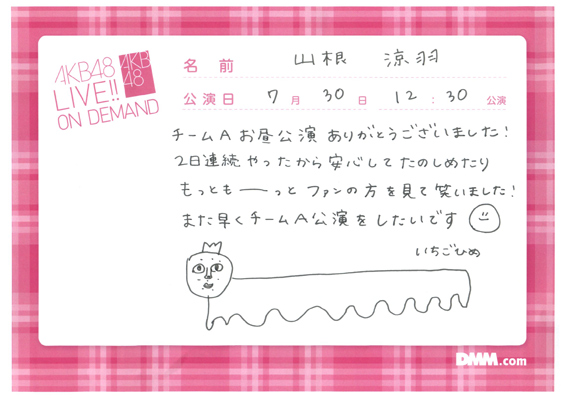 AKB48
LIVE!!
ON DEMAND
AKB
48
名 前 山根 涼羽
公演日 7月30日 12:30公演
チームAお昼公演ありがとうございました!
2日連続やったから安心してたのしめたり
もっともーーっとファンの方を見て笑いました!
また早くチームA公演をしたいです
いちごひめ
DMM.com